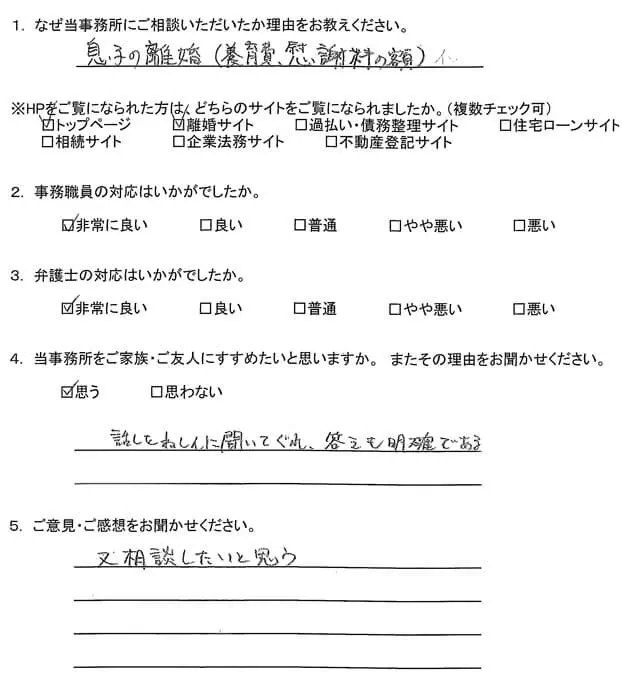 1. なぜ当事務所にご相談いただいたか理由をお教えください。
息子の離婚(養育費、慰謝料の額)
※HPをご覧になられた方は、どちらのサイトをご覧になられましたか。(複数チェック可)
☑トップページ ☑離婚サイト □過払い・債務整理サイト □住宅ローンサイト
□相続サイト □企業法務サイト □不動産登記サイト
2. 事務職員の対応はいかがでしたか。
☑非常に良い □良い □普通 □やや悪い □悪い
3. 弁護士の対応はいかがでしたか。
☑非常に良い □良い □普通 □やや悪い □悪い
4. 当事務所をご家族・ご友人にすすめたいと思いますか。 またその理由をお聞かせください。
☑思う □思わない
話しを に聞いてくれ、答えも明確である
5. ご意見・ご感想をお聞かせください。
又相談したいと思う